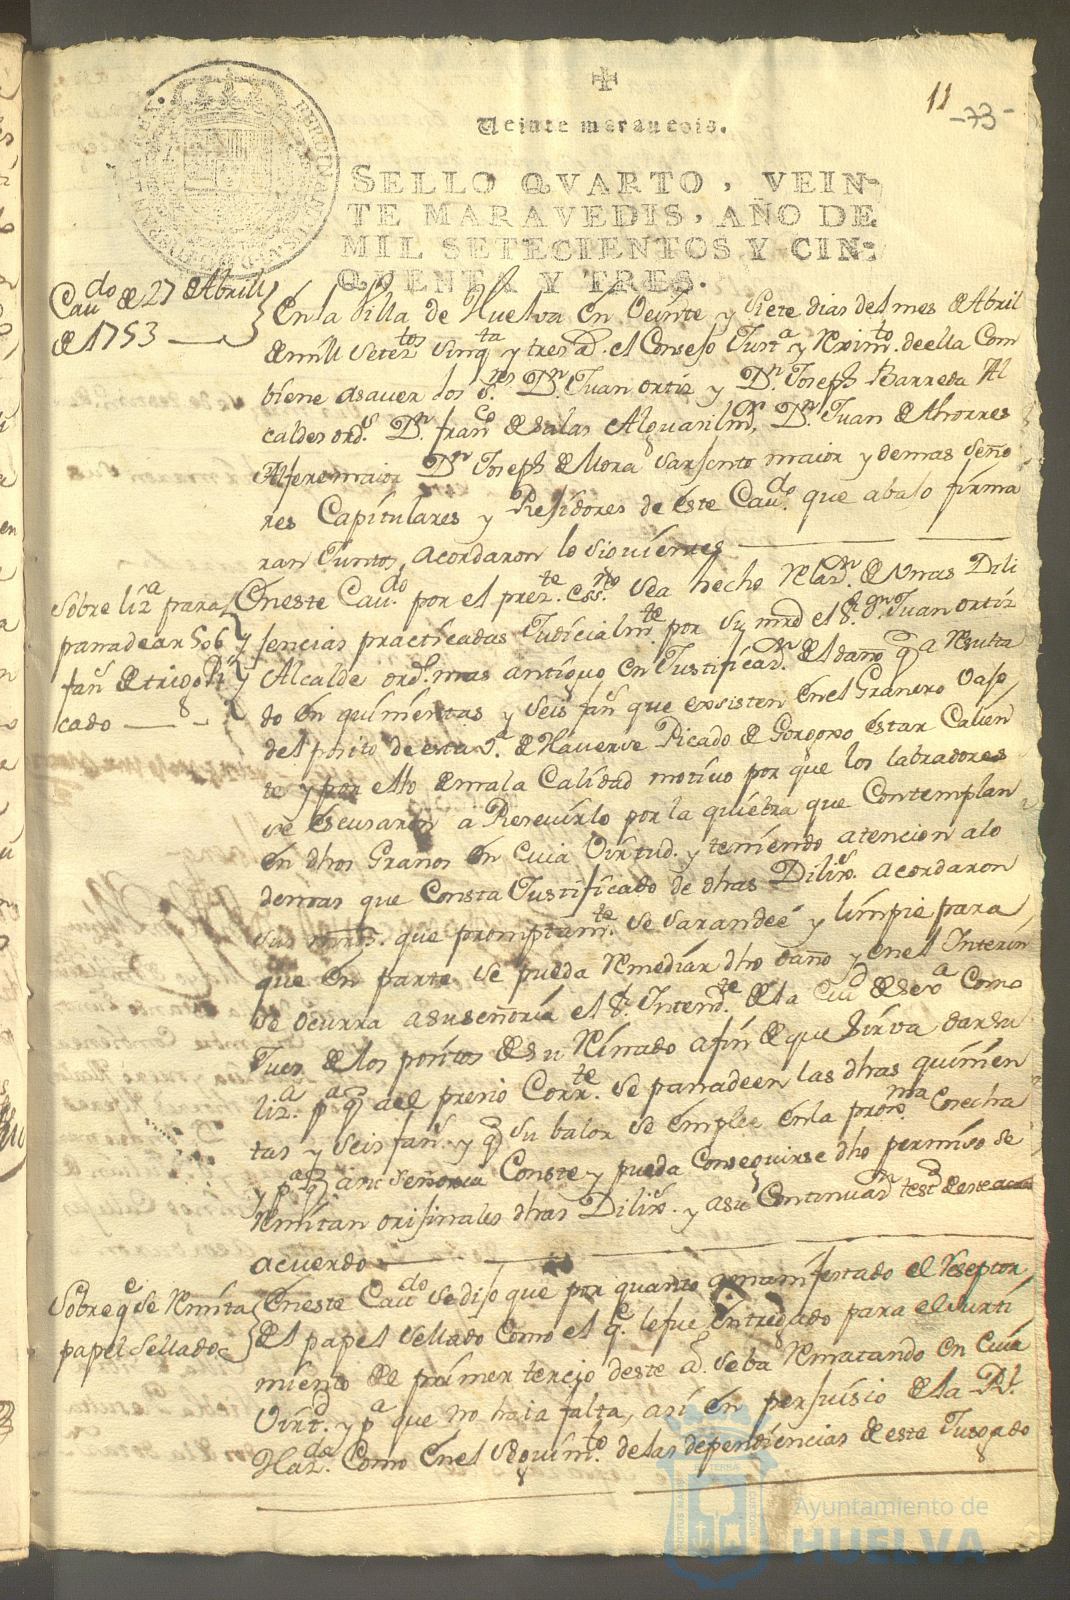 11
-73-
Veinte maravedis.
SELLO QVARTO, VEIN-
TE MARAVEDIS, AÑO DE
MIL SETECIENTOS Y CIN-
QVENTA Y TRES.
Cavdo de 27 de Abrill
de 1753
En la Villa de Huelva en Veinte y Siete dias del mes de Abril
de mill setetos sinqta y tres as. el Consejo Justa y Reximto. de ella Com
biene asauer los Sres. Dn. Juan ortiz y Dn. Joseph Barreda Al
caldes ords. Dn. franco de salas Alguasilmr. Dn. Juan de Thorres
Alferes maior Dn. Joseph de Mora Sarjento maior y demas Seño
res Capitulares y Residores de este Cavdo. que abajo firma
ran Juntos, acordaron lo siguiente
Sobre liza para
panadear 506 y
fans de trigo Pi
cado
En este Cavdo. por el preste. Essno Sea hecho Relazn. de Unas Dili
sencias practicadas Judicialmte por Su mrd el Sr. Dn. Juan ortiz
Alcalde ordo. mas antiguo en Justificazn. del daño q a Resulta
do en quinientas y seis fans que exsisten en el Granero Vajo
del posito de esta Va. de Haverse Picado de Gorgojo estar Calien
te y por ello de mala Calidad motivo por que los labradores
se escusaron a Reseuirlo por la quiebra que Contemplan
en dhos Granos en Cuia Virtud. y teniendo atencion alo
demas que Consta Justificado de dhas Dilixs. acordaron
sus mrds. que promptamte. se sarandeé y limpie para
que en parte se pueda Remediar dho daño y en el Interin
se ocurra a su señoria el Sr. Intendte. de la Ciud de Sexa Como
Juez de los positos de su Reinado a fin de que sirva dar su
liza. pa q al presio Corrte. se panadeen las dhas quinien
tas y seis fans. y q su balor se emplee en la proxma Cosecha
y pa q a su Señoria Conste y pueda Conseguirse dho permiso se
Remitan orisinales dhas Dilixs. y a su Continuazn testo de este
acuerdo
Sobre qe se Remita
papel sellado
En este Cavdo se dijo que por quanto a manifestado el Reseptor
del papel sellado Como el q. le fue entregado para el surti
miento del primer tercio deste ao. se ba Rematando en Cuia
Virtd. y pa que no haia falta, asi en persuisio de la Rl.
Hazda. Como en el seguimto. de las dependiencias de este Jusgado
Ayuntamiento de
HUELVA